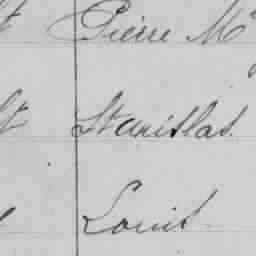 Pierre M
Stanislas.
Louis